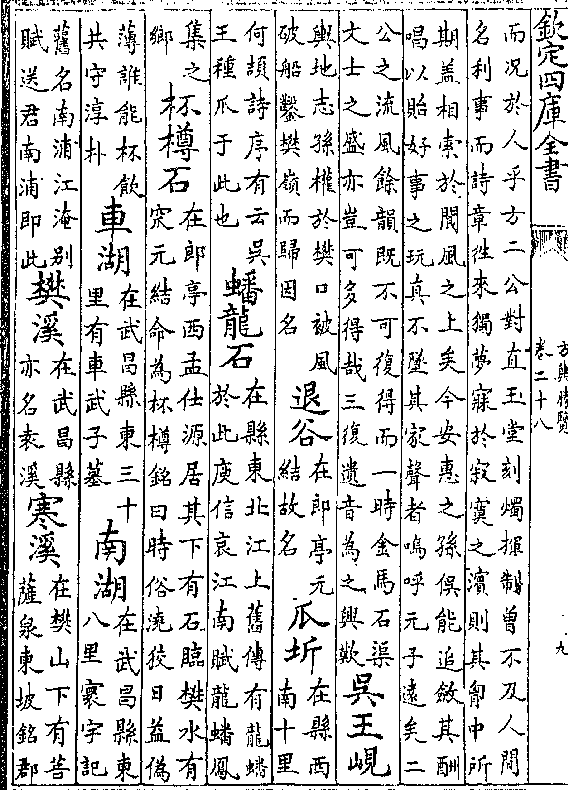 欽定四庫全書
方輿勝覽
卷二十八
九
而況於人乎方二公對直玉堂刻燭揮制曽不及人間
名利事而詩章徃來獨夢寐於寂寞之濵則其胷中所
期盖相索於閬風之上矣今安惠之孫俁能追敘其酬
唱以貽好事之玩真不墜其家聲者嗚呼元子逺矣二
公之流風餘韻既不可復得而一時金馬石渠
文士之盛亦豈可多得哉三復遺音為之興歎
吳王峴
輿地志孫權於樊口被風
破船鑿樊嶺而歸因名
退谷
在郎亭元
結故名
瓜圻
在縣西
南十里
何頡詩序有云吳
王種瓜于此也
蟠龍石
在縣東北江上舊傳有龍蟠
於此庾信哀江南賦龍蟠鳳
集之
鄉
杯樽石
在郎亭西孟仕源居其下有石臨樊水有
窊元結命為杯樽銘曰時俗澆狡日益偽
薄誰能杯飲
共守淳朴
車湖
在武昌縣東三十
里有車武子墓
南湖
在武昌縣東
八里寰宇記
舊名南浦江淹别
賦送君南浦即此
樊溪
在武昌縣
亦名袁溪
寒溪
在樊山下有菩
薩泉東坡銘郡